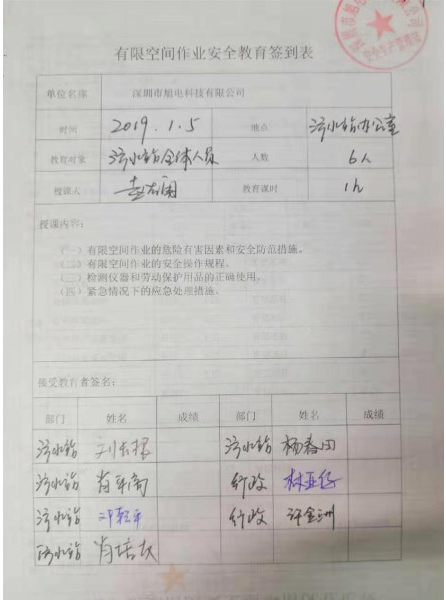 有限空间作业安全教育签到表
单位名称 深圳市旭电科技有限公司
时间 2019.1.5 地点 污水站办公室
教育对象 污水站全体人员 人数 6人
授课人 教育课时 1h
授课内容:
(一)有限空间作业的危险有害因素和安全防范措施。
(二)有限空间作业的安全操作规程。
(三)检测仪器和劳动保护用品的正确使用。
(四)紧急情况下的应急处理措施。
接受教育者签名:
部门 姓名 成绩 部门 姓名 成绩
污水站 污水站 杨春田
污水站 行政 林亚仔
污水站 行政
污水站